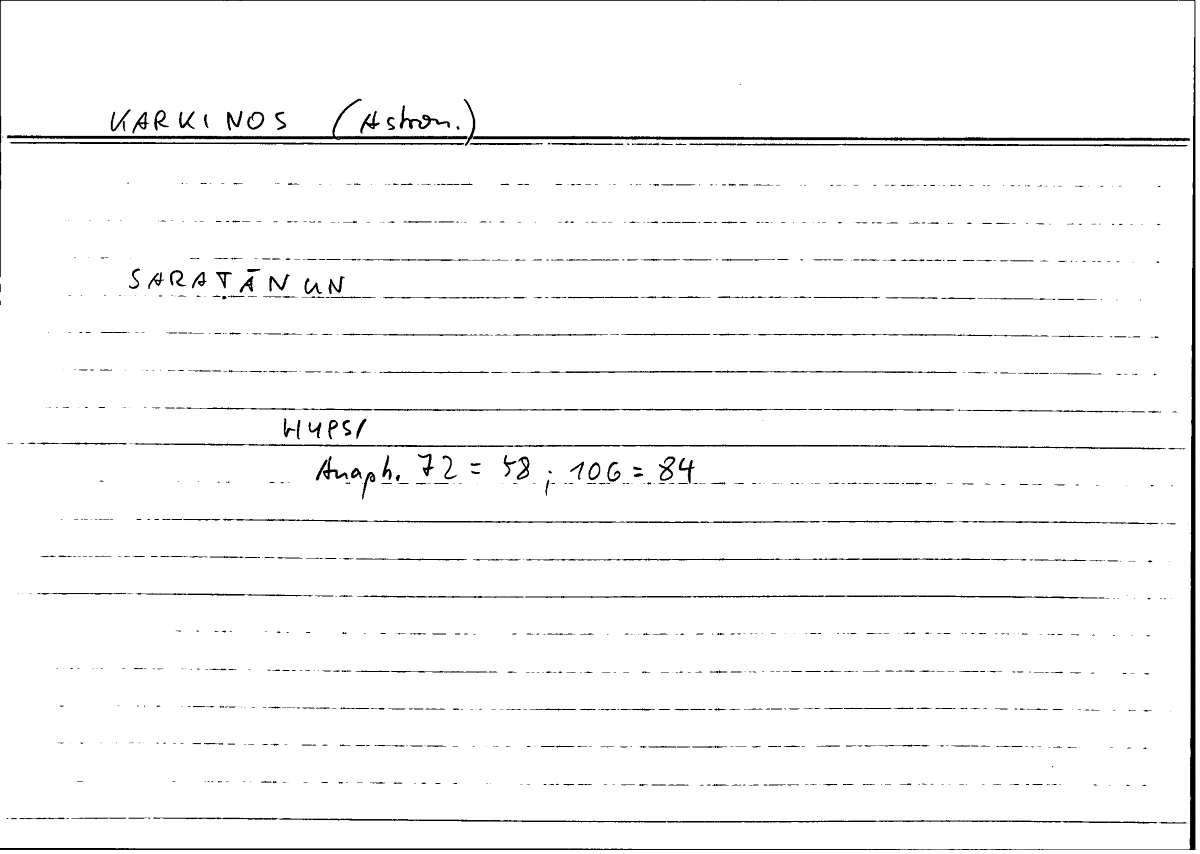 KARKINOS (Astron.)
SARAṬĀNUN
HYPSI
Anaph. 72 = 58 ; 106 = 84